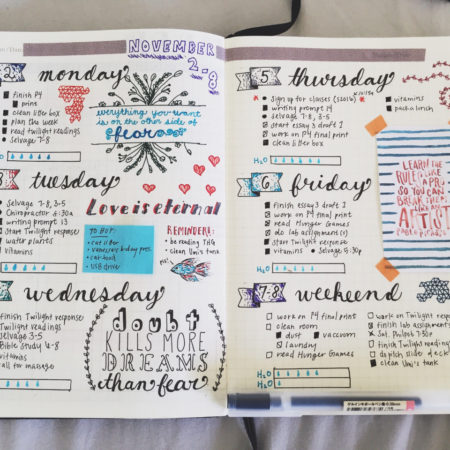 NOVEMBER
2-8
2
monday
finish P4
print
clean litter box
plan the week
read twilight readings
selvage 7-8
H₂O
everything you want
is on the other side of
fear
3
TUESDAY
Selvage 7-8, 3-5
Chiropractor
writing Prompt 13
start Twilight response
water plants
vitamins
Love is eternal
TO BUY:
cat litter
cat food
USB drive
REMINDERS:
be reading THG
clean Umi's tank
wednesday
finish Twilight response
Twilight readings
Selvage 3-5
Bible Study 6-8
vitamins
call for massage
doubt
KILLS MORE
DREAMS
than fear
5
thursday
Sign up for classes
writing prompt 14
selvage 7-8, 3-5
start essay 3 draft 1
work on P4 final print
clean litter box
vitamins
pack a lunch
H₂O
6
friday
finish essay 3 draft 1
work on P4 final print
read Hunger Games
do lab assignment
start Twilight response
vitamins
Selvage
H₂O
LEARN THE
RULES LIKE
A PRO,
SO YOU CAN
BREAK THEM
LIKE AN
ARTIST
pablo picasso
7-8
weekend
work on P4 final print
clean room
dust
vaccum
laundry
read Hunger Games
H₂O
H₂O
work on Twilight response
finish lab assignment
finish Twilight readings
do pitch slide deck
clean Umi's tank